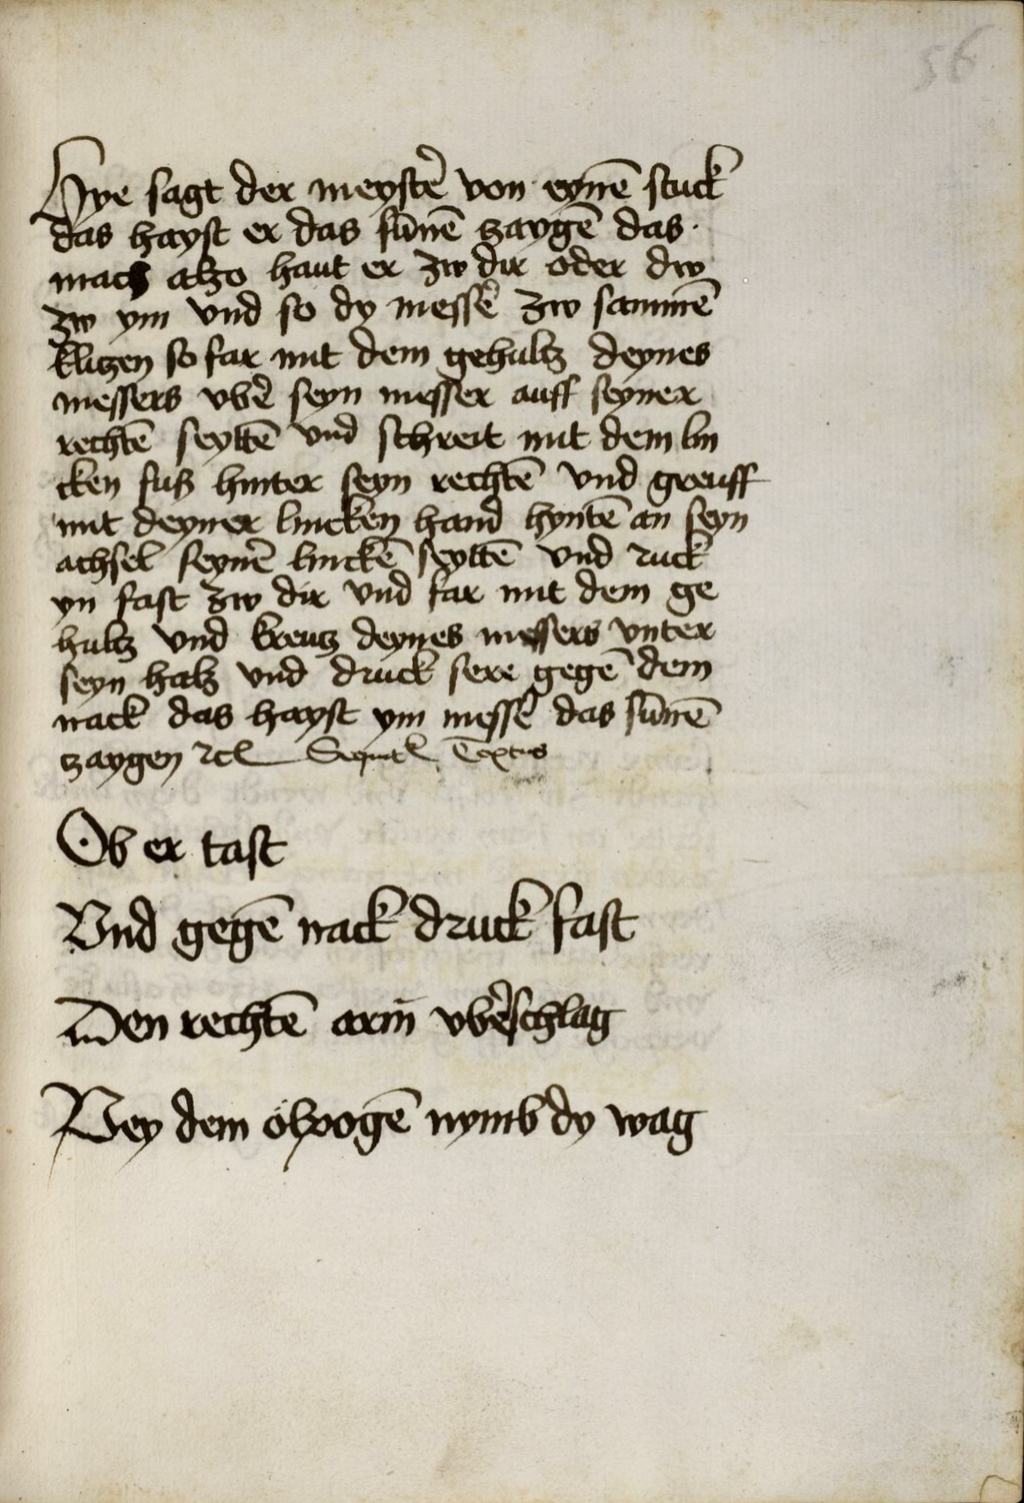 56
Hye sagt der meystẽ von eynē stuck
das hayst er das sūnē zaygē das ·
mach alzo haut er zw dir oder dw
zw ym vnd so dy messẽ zw sammē
klitzen so far mit dem gehultz deynes
messers vbẽ seyn messer auff seyner
rechtē seyttē vnd schreit mit dem lin
cken fuß hinter seyn rechtē vnd greuff
mit deyner lincken hand hyntē an seyn
achsel seynẽ linckē seyttē vnd ruck
yn fast zw dir vnd far mit dem ge
hultz vnd kreutz deynes messers vnter
seyn halz vnd druck sere gegē dem
nack das hayst ym messẽ das sūnē
zaygen ꝛcꝉ Sequitꝉ Textus
Ob er tast
Vnd gegē nack druck fast
Den rechtē arm̄ vbẽschlag
Bey dem olpogē nymb dy wag